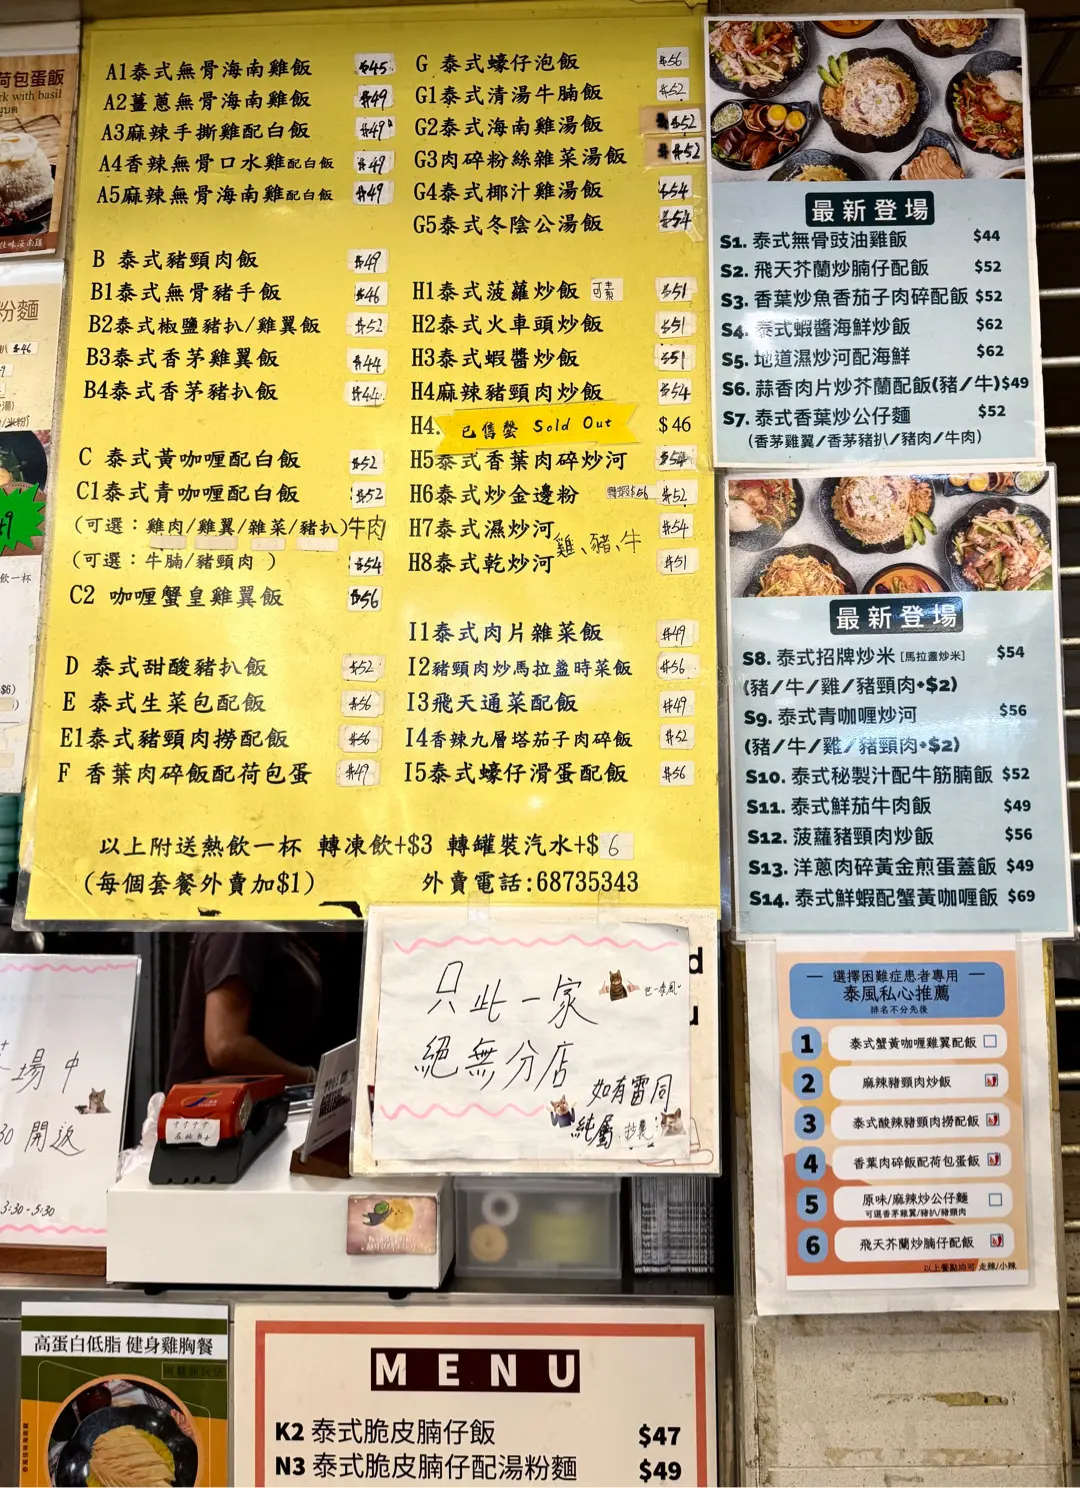 荷包蛋飯
rk with basil
粉麵
$46
A1泰式無骨海南雞飯 $45
A2薑蔥無骨海南雞飯 $49
A3麻辣手撕雞配白飯 $49
A4香辣無骨口水雞配白飯 $49
A5麻辣無骨海南雞配白飯 $49
B 泰式豬頸肉飯 $49
B1泰式無骨豬手飯 $46
B2泰式椒鹽豬扒/雞翼飯 $52
B3泰式香茅雞翼飯 $44
B4泰式香茅豬扒飯 $44
C 泰式黃咖喱配白飯 $52
C1泰式青咖喱配白飯 $52
(可選：雞肉/雞翼/雜菜/豬扒)牛肉
(可選：牛腩/豬頸肉 ) $54
C2 咖喱蟹皇雞翼飯 $56
D 泰式甜酸豬扒飯 $52
E 泰式生菜包配飯 $56
E1泰式豬頸肉撈配飯 $56
F 香葉肉碎飯配荷包蛋 $49
G 泰式蠔仔泡飯 $56
G1泰式清湯牛腩飯 $52
G2泰式海南雞湯飯 $52
G3肉碎粉絲雜菜湯飯 $52
G4泰式椰汁雞湯飯 $54
G5泰式冬陰公湯飯 $54
H1泰式菠蘿炒飯 可素 $51
H2泰式火車頭炒飯 $51
H3泰式蝦醬炒飯 $51
H4麻辣豬頸肉炒飯 $54
H4. 已售罄 Sold Out $46
H5泰式香葉肉碎炒河 $54
H6泰式炒金邊粉 $52
H7泰式濕炒河 $54
雞、豬、牛
H8泰式乾炒河 $51
I1泰式肉片雜菜飯 $49
I2豬頸肉炒馬拉盞時菜飯 $56
I3飛天通菜配飯 $49
I4香辣九層塔茄子肉碎飯 $52
I5泰式蠔仔滑蛋配飯 $56
以上附送熱飲一杯 轉凍飲+$3 轉罐裝汽水+$6
(每個套餐外賣加$1) 外賣電話:68735343
最新登場
S1. 泰式無骨豉油雞飯 $44
S2. 飛天芥蘭炒腩仔配飯 $52
S3. 香葉炒魚香茄子肉碎配飯 $52
S4. 泰式蝦醬海鮮炒飯 $62
S5. 地道濕炒河配海鮮 $62
S6. 蒜香肉片炒芥蘭配飯(豬/牛)$49
S7. 泰式香葉炒公仔麵 $52
(香茅雞翼/香茅豬扒/豬肉/牛肉)
最新登場
S8. 泰式招牌炒米 [馬拉盞炒米] $54
(豬/牛/雞/豬頸肉+$2)
S9. 泰式青咖喱炒河 $56
(豬/牛/雞/豬頸肉+$2)
S10. 泰式秘製汁配牛筋腩飯 $52
S11. 泰式鮮茄牛肉飯 $49
S12. 菠蘿豬頸肉炒飯 $56
S13. 洋蔥肉碎黃金煎蛋蓋飯 $49
S14. 泰式鮮蝦配蟹黃咖喱飯 $69
選擇困難症患者專用
泰風私心推薦
排名不分先後
1 泰式蟹黃咖喱雞翼配飯
2 麻辣豬頸肉炒飯
3 泰式酸辣豬頸肉撈配飯
4 香葉肉碎飯配荷包蛋飯
5 原味/麻辣炒公仔麵
可選香茅雞翼/豬扒/豬頸肉
6 飛天芥蘭炒腩仔配飯
以上餐點均可 走辣/小辣
只此一家
絕無分店
如有雷同
純屬抄襲
場中
30 開返
3:30-5:30
高蛋白低脂 健身雞胸餐
MENU
K2 泰式脆皮腩仔飯 $47
N3 泰式脆皮腩仔配湯粉麵 $49